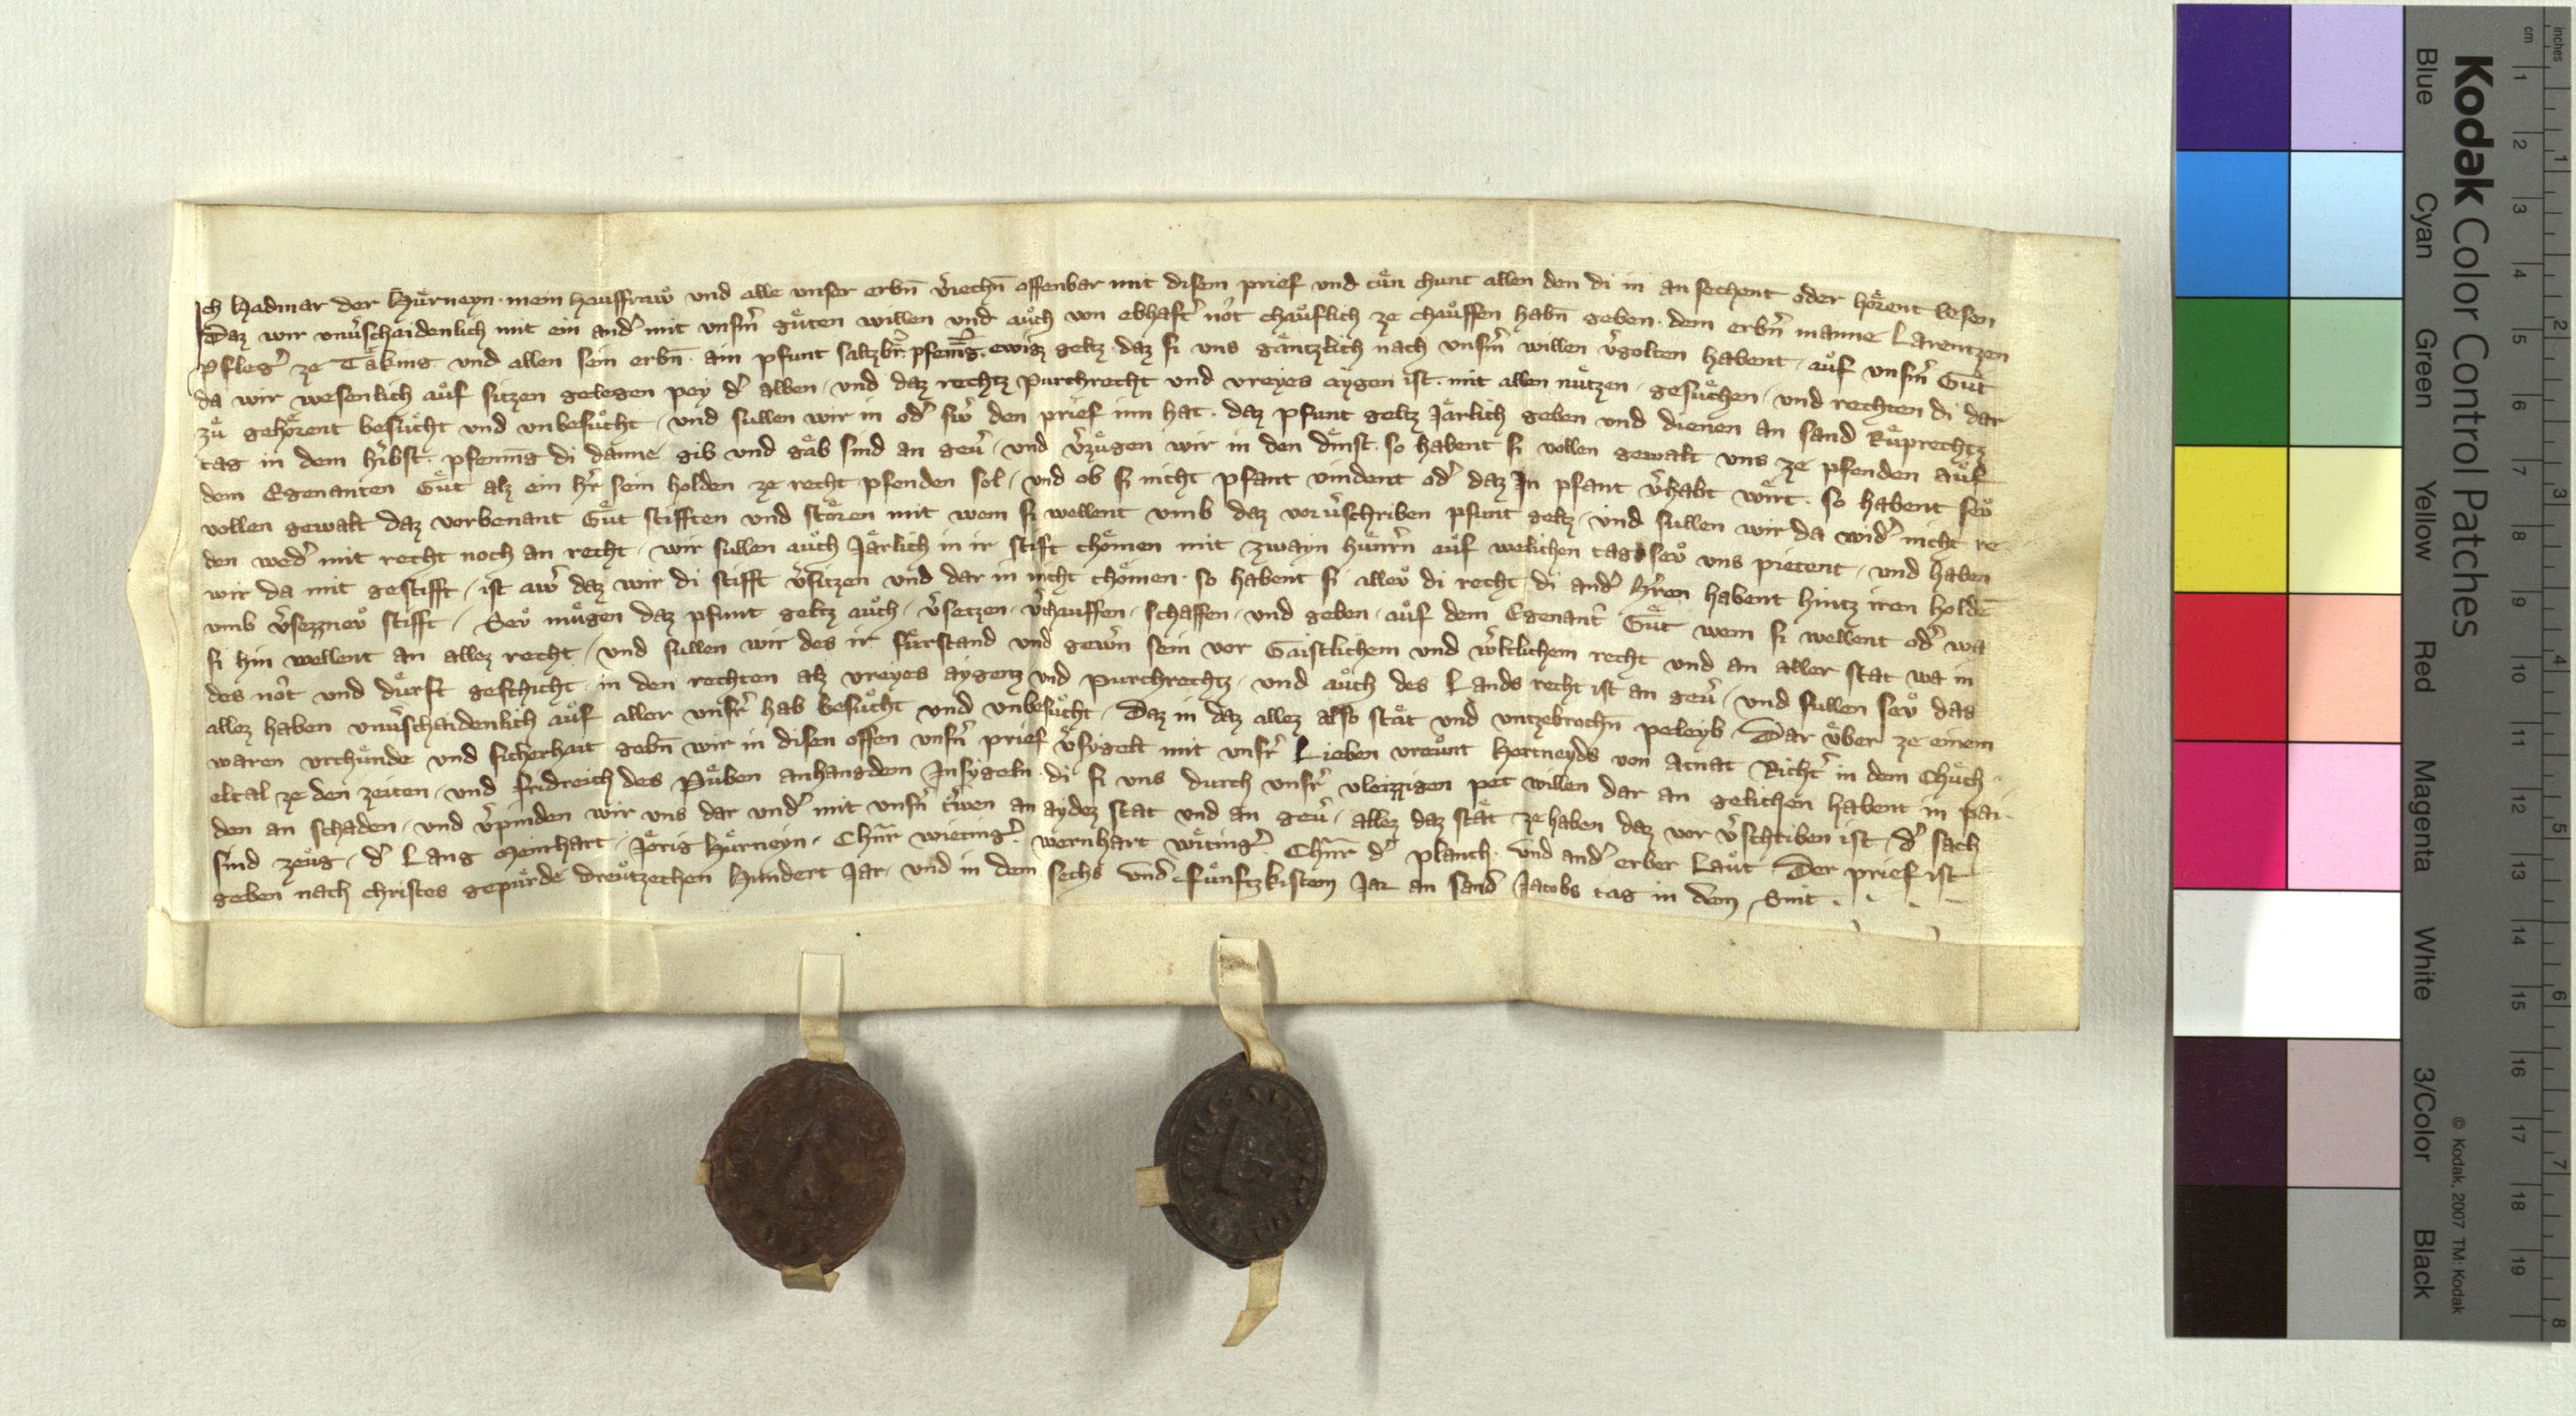 Ich Hadmar der Hůrneyn · mein hauffrawͦ und alle unser erbn̄ v̓iechn̄ offenbar mit disem prief und tůn chunt allen den di in an sechent oder hoͤrent lesen
Daz wir unv̓schaidenlich mit ein and̓ mit unsm̓ gůten willen und auͦch von ebhaft̓ noͤt chauͦflich ze chauͦffen habn̄ geben · dem erbn̓ manne Larentzen
Pfleg̓ ze Taͤking · und allen sein erbn̄ · ain pfunt saltzbr̓ · pfenīg · ewigz geltz daz si uns gaͤntzlich nach unsm̓ willen v̓golten habent · auͦf unsm̓ Guͤt
da wir wesenlich auͦf sitzen gelegen pey d̓ alben · und daz rechtz purchrecht und vreyes aygen ist · mit allen nuͤtzen · gesuͤchen · und rechten di dar
zuͤ gehoͤrent besuͤcht und unbesuͤcht · und sullen wir in od̓ sw̓ den prief inn hat · daz pfunt geltz Jaͤrlich geben und dienen an sand Ruͤprechtz
tag in dem h̓ibst · pfennīg di danne gib und gaͤb sind an gev̓ · und v̓zuͤgen wir in den dinst · so habent si vollen gewalt uns ze pfenden auͦf
dem Egenanten Guͤt alz ein hr̓ sein holden ze recht pfenden sol · und ob si nicht pfant vindent od̓ daz In pfant v̓habt wuͤrt · so habent sevͦ
vollen gewalt daz vorbenant Guͤt stifften und stoͤren mit wem si wellent umb daz vorv̓schriben pfunt geltz · und sullen wir da wid̓ nicht re
den wed̓ mit recht noch an recht · wir sullen auͦch Jaͤrlich in ir stift choͤmen mit zwayn huͤnrn̓ auͦf welichen tag sevͦ uns pietent · und haben
wir da mit gestifft · ist aw̓ daz wir di stifft v̓sitzen und dar in nicht choͤmen · so habent si allevͦ di recht di and̓ hr̓en habent hintz iren holdē
umb v̓sezznevͦ stifft · Sevͦ muͤgen daz pfunt geltz auͦch · v̓setzen · v̓chauffen · schaffen · und geben · auͦf dem Egenant̓ Guͤt wem si wellent od̓ wa
si hin wellent an allez recht · und sullen wir des ir fuͤrstand und gewn̓ sein vor Gaistlichem und w̓ltlichem recht und an aller stat wa in
des noͤt und duͤrft geschicht · in den rechten alz vreyes aygentz und purchrechtz · und auͦch des Lands recht ist an gev̓ · und sullen sevͦ daz
allez haben unv̓schaidenlich auͦf aller unsr̓ hab besuͤcht und unbesuͤcht · Daz in daz allez also staͤt und untzebrochn̄ peleyb · Dar uͤber ze einem
waren urchuͤnde und sicherhait gebn̄ wir in disen offen unsn̓ prief v̓sygelt mit unsr̓ Lieben vreuͦnt Hertneyds von Atnat Richt̓ in dem Chuͤch
eltal ze den zeiten · und fridreich des Puͤben anhangdem Insygeln · di si uns durch unsr̓ vleizzigen pet willen dar an gelichen habent in pai
den an schaden · und v̓pinden wir uns dar und̓ mit unsn̓ tr̓wen an aydez stat und an gev̓ · allez daz staͤt ze haben daz vor v̓schriben ist · d̓ sach
sind zeuͤg · d̓ Lang Meinhart · Joͤrig Huͤrneyn · Chūr wieting̓ · wernhart wuͤting̓ · Chūr d̓ planch · und and̓ erber Lauͦt · Der prief ist
geben nach christes gepuͤrde dreuͦtzechen hundert Jar · und in dem sechs und fuͤnftzkistem Jar an sand Jacobs tag in dem Snit · · · ·
Kodak Color Control Patches
Blue Cyan Green Yellow Red Magenta White 3/Color Black
© Kodak, 2007 TM: Kodak
inches 1 2 3 4 5 6 7 8
cm 1 2 3 4 5 6 7 8 9 10 11 12 13 14 15 16 17 18 19